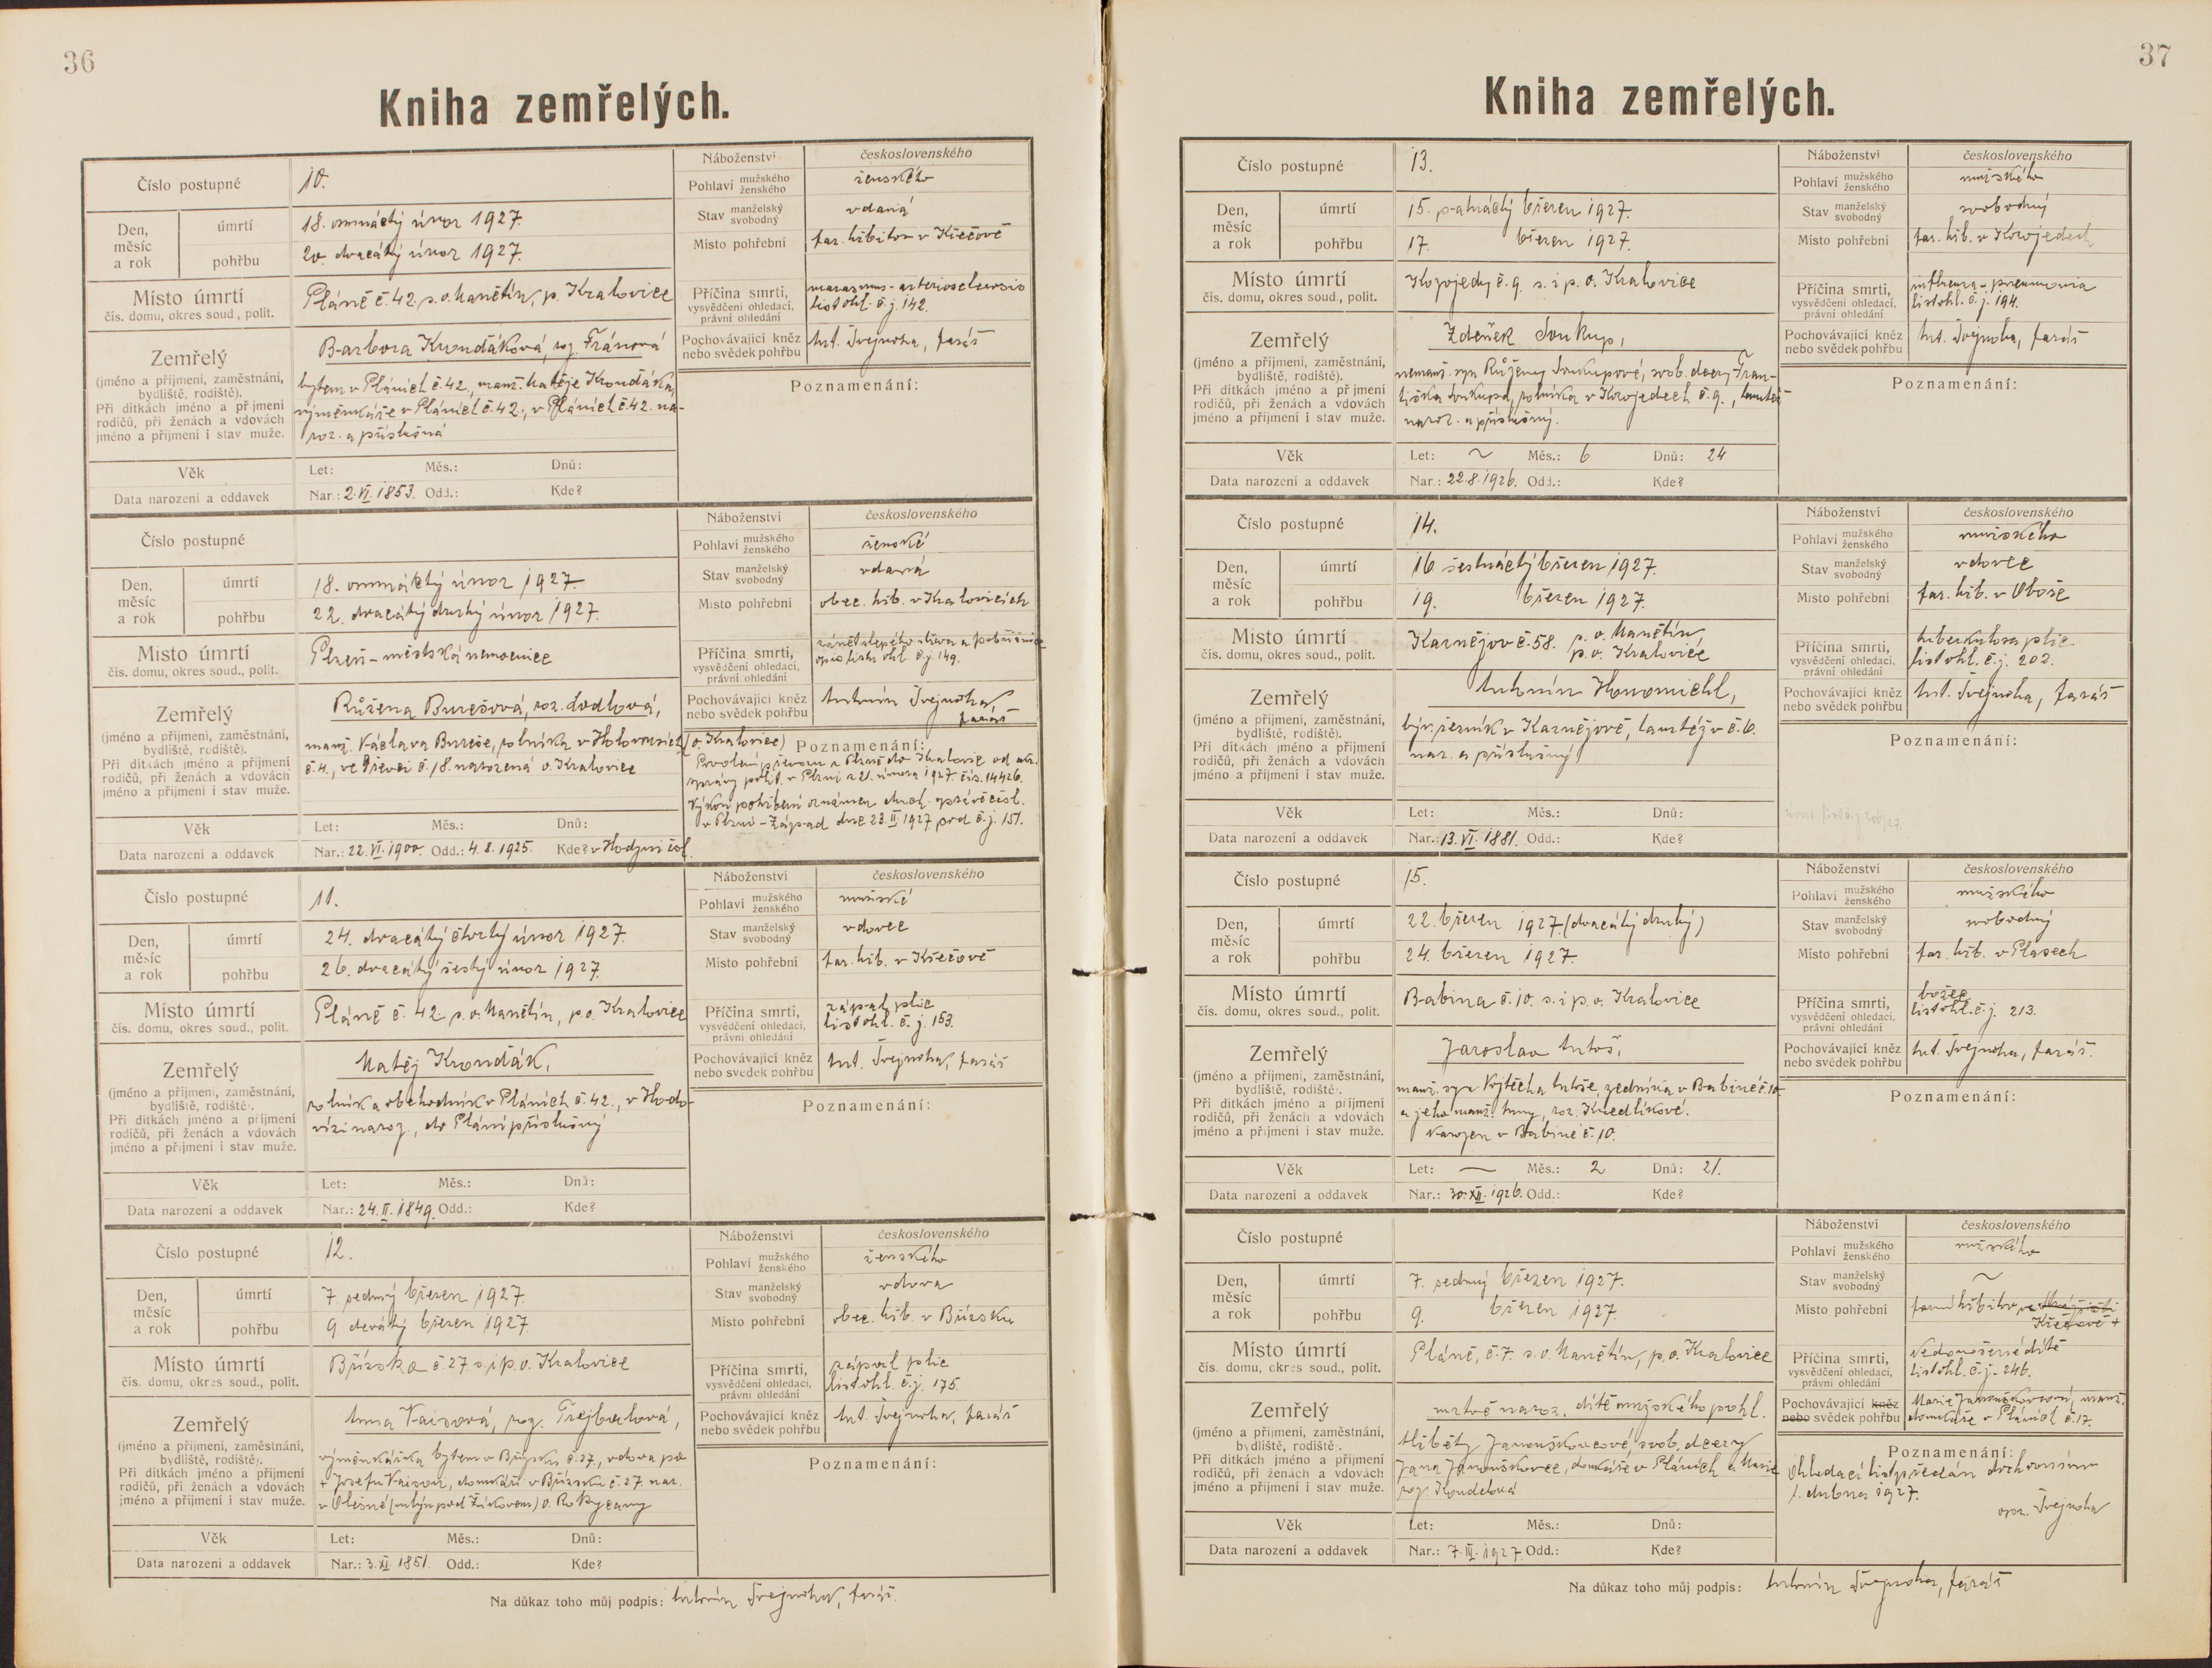 36
Kniha zemřelých.
Číslo postupné 10.
Náboženství československého
Pohlaví mužského ženského ženského
Den, měsíc a rok
úmrtí 18. osmnáctý únor 1927.
pohřbu 20. dvacátý únor 1927.
Stav manželský svobodný vdaná
Místo pohřební far. hřbitov v Křečově
Místo úmrtí
čís. domu, okres soud., polit.
Pláně č. 42. s. o. Manětín, p. Kralovice
Příčina smrti,
vysvědčení ohledací,
právní ohledání
marasmus - arteriosclerosis
list ohl. č. j. 142.
Zemřelý
(jméno a příjmení, zaměstnání,
bydliště, rodiště).
Při dítkách jméno a příjmení
rodičů, při ženách a vdovách
jméno a příjmení i stav muže.
Barbora Krondáková, roz. Fránová
bytem v Pláních č. 42., manž. Matěje Krondáka,
výměnkáře v Pláních č. 42., v Pláních č. 42. na-
roz. a příslušná
Pochovávající kněz
nebo svědek pohřbu
Ant. Švejnoha, farář
Poznamenání:
Věk Let: Měs.: Dnů:
Data narození a oddavek Nar.: 2. VI. 1853. Odd.: Kde?
Číslo postupné
Náboženství československého
Pohlaví mužského ženského ženské
Den, měsíc a rok
úmrtí 18. osmnáctý únor 1927
pohřbu 22. dvacátý druhý únor 1927.
Stav manželský svobodný vdaná
Místo pohřební obec. hřb. v Kralovicích
Místo úmrtí
čís. domu, okres soud., polit.
Plzeň - městská nemocnice
Příčina smrti,
vysvědčení ohledací,
právní ohledání
zánět slepého střeva a pobřišnice
opis listu ohl. č. j. 149.
Zemřelý
(jméno a příjmení, zaměstnání,
bydliště, rodiště).
Při dítkách jméno a příjmení
rodičů, při ženách a vdovách
jméno a příjmení i stav muže.
Růžena Burešová, roz. Lodlová,
manž. Václava Bureše, rolníka v Holovousích (o. Kralovice)
č. 4., ve Dřevci č. 18. narozená o. Kralovice
Pochovávající kněz
nebo svědek pohřbu
Antonín Švejnoha,
farář
Poznamenání:
Povolení převozu z Plzně do Kralovic od okr.
správy polit. v Plzni z 21. února 1927. čís. 14426.
Výkon pohřbení oznámen duch. správě čsl.
v Plzni - Západ dne 23. II. 1927 pod č. j. 151.
Věk Let: Měs.: Dnů:
Data narození a oddavek Nar.: 22. VI. 1900. Odd.: 4. 8. 1925. Kde? v Hodyni čsl.
Číslo postupné 11.
Náboženství československého
Pohlaví mužského ženského mužské
Den, měsíc a rok
úmrtí 24. dvacátý čtvrtý únor 1927.
pohřbu 26. dvacátý šestý únor 1927.
Stav manželský svobodný vdovec
Místo pohřební far. hřb. v Křečově
Místo úmrtí
čís. domu, okres soud., polit.
Pláně č. 42 s. o. Manětín, p. o. Kralovice
Příčina smrti,
vysvědčení ohledací,
právní ohledání
zápal plic
list ohl. č. j. 153.
Zemřelý
(jméno a příjmení, zaměstnání,
bydliště, rodiště).
Při dítkách jméno a příjmení
rodičů, při ženách a vdovách
jméno a příjmení i stav muže.
Matěj Krondák,
rolník a obchodník v Pláních č. 42., v Hodo-
vizi naroz., do Plání příslušný
Pochovávající kněz
nebo svědek pohřbu
Ant. Švejnoha, farář
Poznamenání:
Věk Let: Měs.: Dnů:
Data narození a oddavek Nar.: 24. II. 1849. Odd.: Kde?
Číslo postupné 12.
Náboženství československého
Pohlaví mužského ženského ženského
Den, měsíc a rok
úmrtí 7. sedmý březen 1927.
pohřbu 9. devátý březen 1927.
Stav manželský svobodný vdova
Místo pohřební obec. hřb. v Břízsku
Místo úmrtí
čís. domu, okres soud., polit.
Břízsko č. 27 s. i p. o. Kralovice
Příčina smrti,
vysvědčení ohledací,
právní ohledání
zápal plic
list ohl. č. j. 175.
Zemřelý
(jméno a příjmení, zaměstnání,
bydliště, rodiště).
Při dítkách jméno a příjmení
rodičů, při ženách a vdovách
jméno a příjmení i stav muže.
Anna Vaisová, roz. Trejbalová,
výměnkářka bytem v Břízsku č. 27., vdova po
+ Josefu Vaisovi, domkáři v Břízsku č. 27. nar.
v Olešné (mlýn pod Žďákovem) o. Rokycany
Pochovávající kněz
nebo svědek pohřbu
Ant. Švejnoha, farář
Poznamenání:
Věk Let: Měs.: Dnů:
Data narození a oddavek Nar.: 3. XI. 1851. Odd.: Kde?
Na důkaz toho můj podpis: Antonín Švejnoha, farář.
37
Kniha zemřelých.
Číslo postupné 13.
Náboženství československého
Pohlaví mužského ženského mužského
Den, měsíc a rok
úmrtí 15. patnáctý březen 1927.
pohřbu 17. březen 1927.
Stav manželský svobodný svobodný
Místo pohřební far. hřb. v Kozojedech
Místo úmrtí
čís. domu, okres soud., polit.
Kozojedy č. 9. s. i p. o. Kralovice
Příčina smrti,
vysvědčení ohledací,
právní ohledání
influenza - pneumonia
list ohl. č. j. 194.
Zemřelý
(jméno a příjmení, zaměstnání,
bydliště, rodiště).
Při dítkách jméno a příjmení
rodičů, při ženách a vdovách
jméno a příjmení i stav muže.
Zdeněk Soukup,
nemanž. syn Růženy Soukupové, svob. dcery Fran-
tiška Soukupa, rolníka v Kozojedech č. 9., tamtéž
naroz. a příslušný.
Pochovávající kněz
nebo svědek pohřbu
Ant. Švejnoha, farář
Poznamenání:
Věk Let: ~ Měs.: 6 Dnů: 24
Data narození a oddavek Nar.: 22. 8. 1926. Odd.: Kde?
Číslo postupné 14.
Náboženství československého
Pohlaví mužského ženského mužského
Den, měsíc a rok
úmrtí 16 šestnáctý březen 1927.
pohřbu 19. březen 1927.
Stav manželský svobodný vdovec
Místo pohřební far. hřb. v Oboře
Místo úmrtí
čís. domu, okres soud., polit.
Kaznějov č. 58. s. o. Manětín,
p. o. Kralovice
Příčina smrti,
vysvědčení ohledací,
právní ohledání
tuberkulosa plic
list ohl. č. j. 202.
Zemřelý
(jméno a příjmení, zaměstnání,
bydliště, rodiště).
Při dítkách jméno a příjmení
rodičů, při ženách a vdovách
jméno a příjmení i stav muže.
Antonín Honomichl,
býv. řezník v Kaznějově, tamtéž v č. 6.
nar. a příslušný
Pochovávající kněz
nebo svědek pohřbu
Ant. Švejnoha, farář
Poznamenání:
Věk Let: Měs.: Dnů:
Data narození a oddavek Nar.: 13. VI. 1881. Odd.: Kde?
Číslo postupné 15.
Náboženství československého
Pohlaví mužského ženského mužského
Den, měsíc a rok
úmrtí 22. březen 1927 (dvacátý druhý)
pohřbu 24. březen 1927.
Stav manželský svobodný svobodný
Místo pohřební far. hřb. v Plasech
Místo úmrtí
čís. domu, okres soud., polit.
Babina č. 10. s. i p. o. Kralovice
Příčina smrti,
vysvědčení ohledací,
právní ohledání
božec
list ohl. č. j. 213.
Zemřelý
(jméno a příjmení, zaměstnání,
bydliště, rodiště).
Při dítkách jméno a příjmení
rodičů, při ženách a vdovách
jméno a příjmení i stav muže.
Jaroslav Antoš,
manž. syn Vojtěcha Antoše, zedníka v Babině č. 10
a jeho manž. Anny, roz. Knedlíkové.
Narozen v Babině č. 10.
Pochovávající kněz
nebo svědek pohřbu
Ant. Švejnoha, farář.
Poznamenání:
Věk Let: — Měs.: 2 Dnů: 21.
Data narození a oddavek Nar.: 30. XII. 1926. Odd.: Kde?
Číslo postupné
Náboženství československého
Pohlaví mužského ženského mužského
Den, měsíc a rok
úmrtí 7. sedmý březen 1927.
pohřbu 9. březen 1927.
Stav manželský svobodný ~
Místo pohřební farní hřbitov ve
Křečově +
Místo úmrtí
čís. domu, okres soud., polit.
Pláně, č. 7. s. o. Manětín, p. o. Kralovice
Příčina smrti,
vysvědčení ohledací,
právní ohledání
Nedonošené dítě
list ohl. č. j. 246.
Zemřelý
(jméno a příjmení, zaměstnání,
bydliště, rodiště).
Při dítkách jméno a příjmení
rodičů, při ženách a vdovách
jméno a příjmení i stav muže.
mrtvě naroz. dítě mužského pohl.
Alžběty Janouškovcové, svob. dcery
Jana Janouškovce, domkáře v Pláních a Marie
roz. Koudelová
Pochovávající kněz
nebo svědek pohřbu
Marie Janouškovcová, manž.
domkáře v Pláních č. 17.
Poznamenání:
Ohledací list předán duchovnímu
1. dubna 1927.
Švejnoha
Věk Let: Měs.: Dnů:
Data narození a oddavek Nar.: 7. III. 1927. Odd.: Kde?
Na důkaz toho můj podpis: Antonín Švejnoha, farář